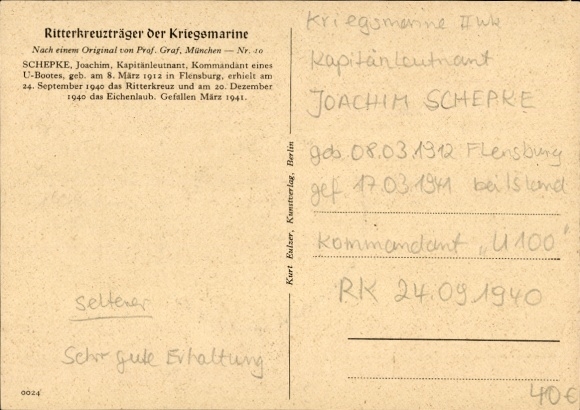 Ritterkreuzträger der Kriegsmarine
Nach einem Original von Prof. Graf, München — Nr. 10
SCHEPKE, Joachim, Kapitänleutnant, Kommandant eines
U-Bootes, geb. am 8. März 1912 in Flensburg, erhielt am
24. September 1940 das Ritterkreuz und am 20. Dezember
1940 das Eichenlaub. Gefallen März 1941.
seltener
Sehr gute Erhaltung
0024
Kurt Eulzer, Kunstverlag, Berlin
Kriegsmarine II WK
Kapitänleutnant
JOACHIM SCHEPKE
geb. 08.03.1912 Flensburg
gef. 17.03.1941 bei Island
Kommandant „U 100"
RK 24.09.1940
40 €